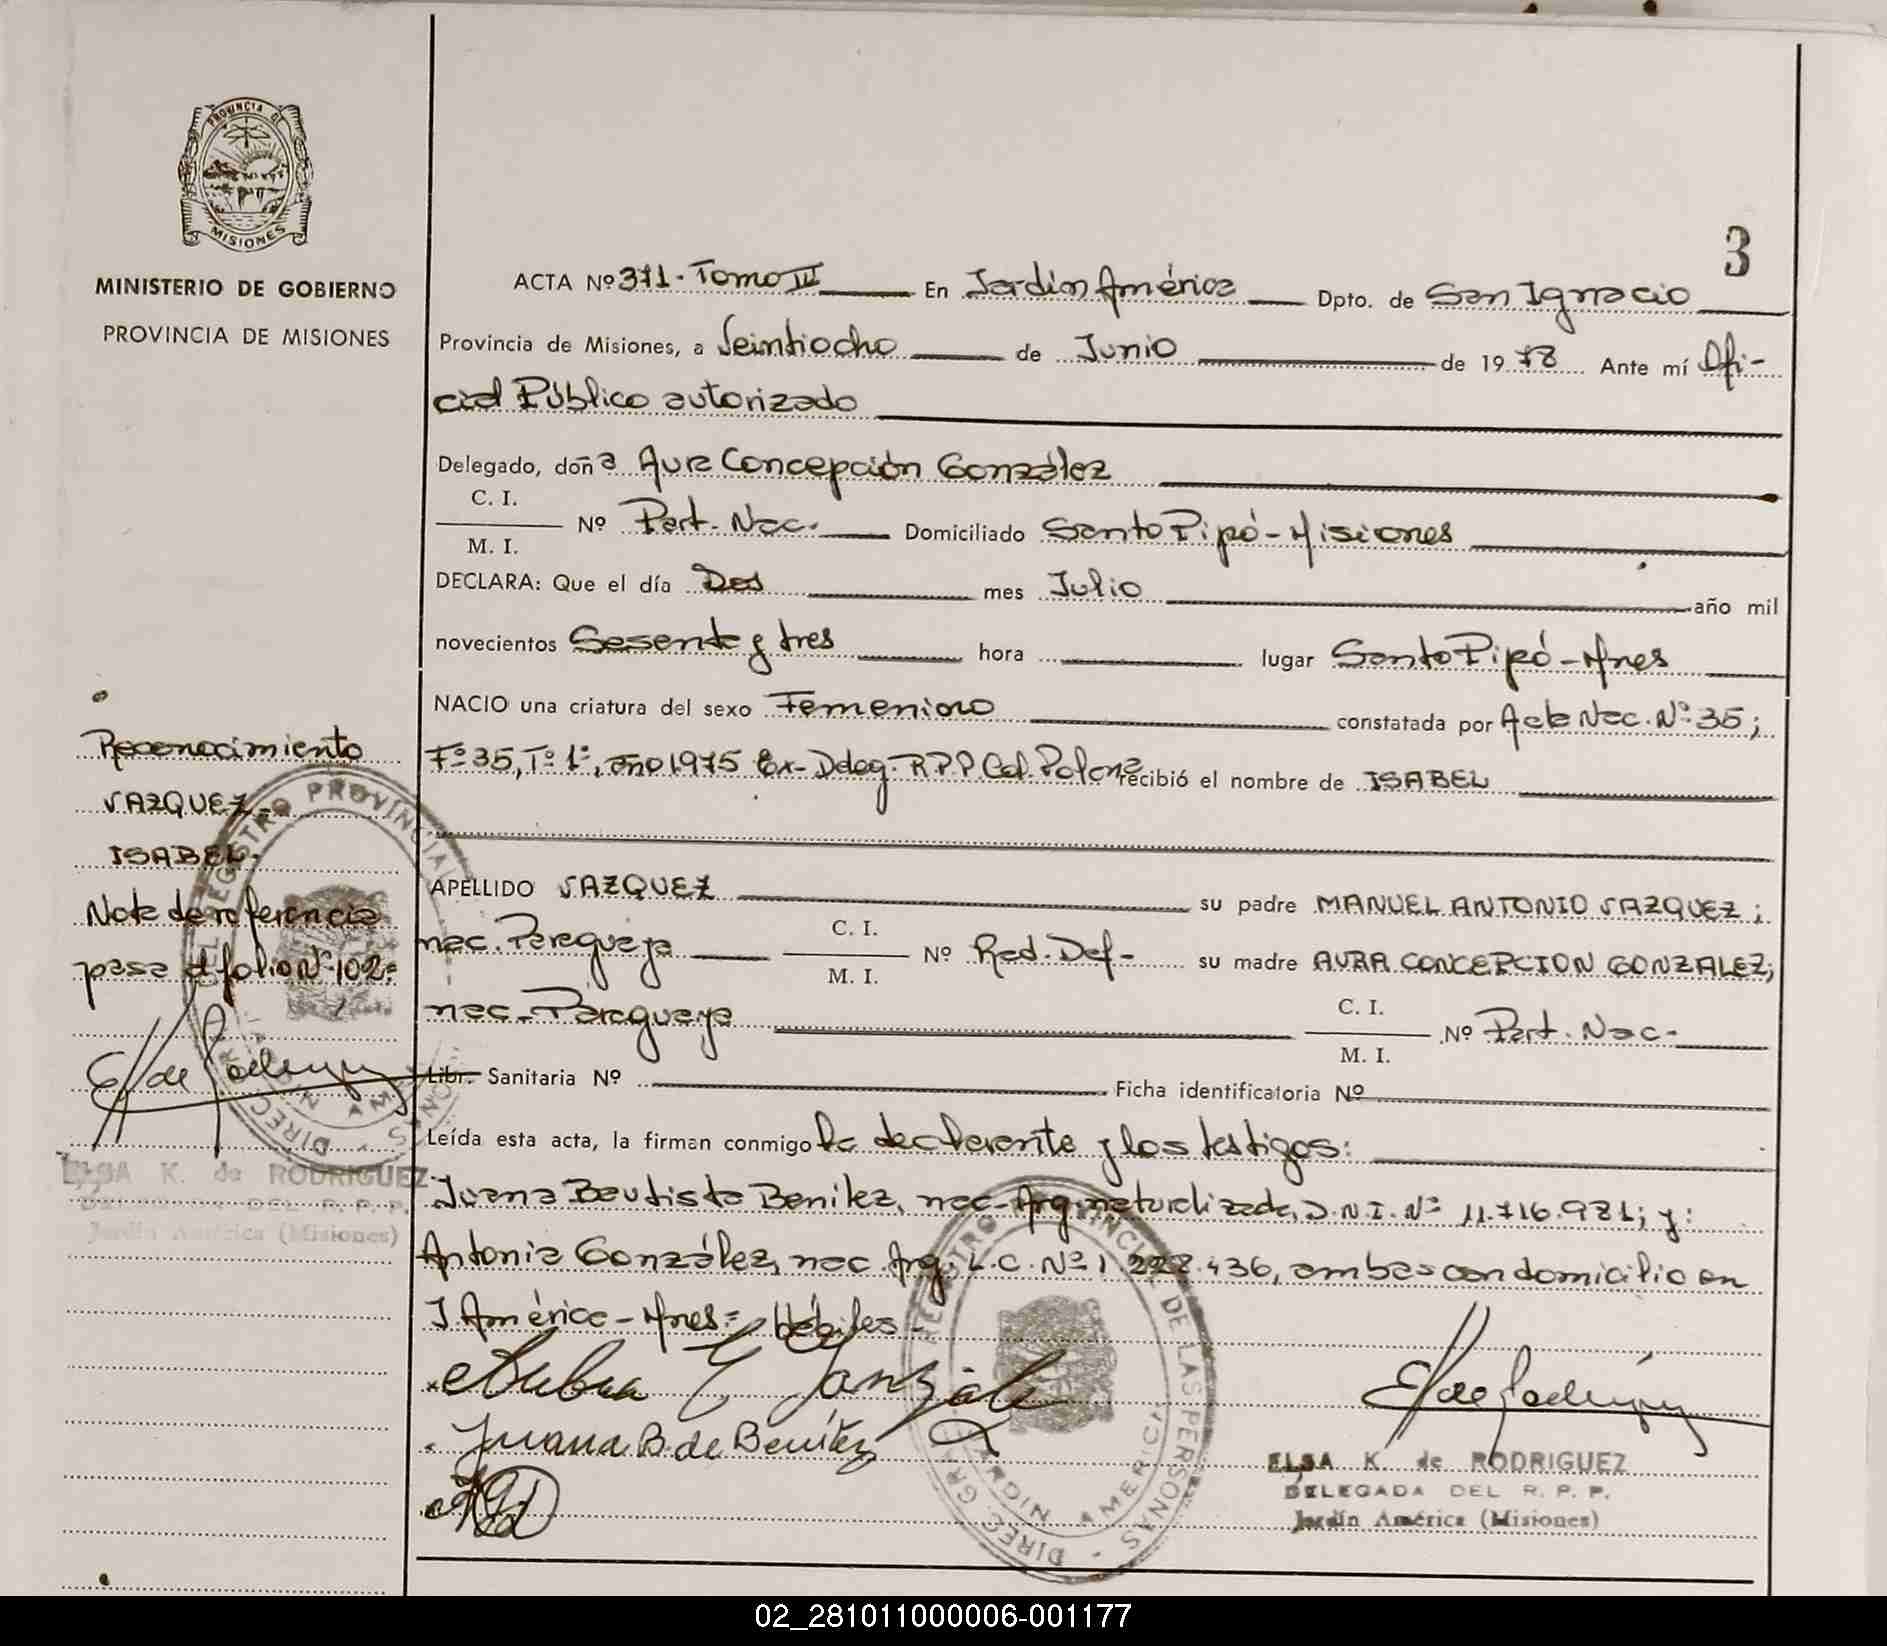 PROVINCIA DE
MISIONES
MINISTERIO DE GOBIERNO
PROVINCIA DE MISIONES
3
ACTA Nº 371 - Tomo III En Jardín América Dpto. de San Ignacio
Provincia de Misiones, a Veintiocho de Junio de 1978 Ante mí Ofi-
cial Público autorizado
Delegado, doña Aura Concepción González
C. I.
M. I.
Nº Pert. Nac. Domiciliado Santo Pipó - Misiones
DECLARA: Que el día Dos mes Julio año mil
novecientos Sesenta y tres hora lugar Santo Pipó - Mnes
NACIO una criatura del sexo Femenino constatada por Acta Nac. Nº 35;
Fº 35, Tº 1º, año 1975 Ex-Deleg. R.P.P Col. Polana recibió el nombre de ISABEL
APELLIDO VAZQUEZ su padre MANUEL ANTONIO VAZQUEZ;
nac. Paraguaya C. I. M. I. Nº Rad. Def- su madre AURA CONCEPCION GONZALEZ;
nac- Paraguaya C. I. M. I. Nº Pert. Nac-
Libr. Sanitaria Nº Ficha identificatoria Nº
Leída esta acta, la firman conmigo la declarante y los testigos:
Juana Bautista Benitez, nac- Arg. naturalizada, D.N.I. Nº 11.716.981; y:
Antonia González, nac. Arg. L.C. Nº 1.228.436, ambas con domicilio en
J. América - Mnes= Hábiles-
González
Juana B. de Benítez
E K de Rodriguez
ELSA K. de RODRIGUEZ
DELEGADA DEL R. P. P.
Jardín América (Misiones)
REGISTRO PROVINCIAL DE LAS PERSONAS - DIREC. GRAL
JARDIN AMERICA
Reconocimiento
VAZQUEZ-
ISABEL-
Nota de referencia
pasa al folio Nº 102=
E K de Rodriguez
REGISTRO PROVINCIAL
DIREC
ELSA K. de RODRIGUEZ
DEL R. P. P.
Jardín América (Misiones)
02_281011000006-001177